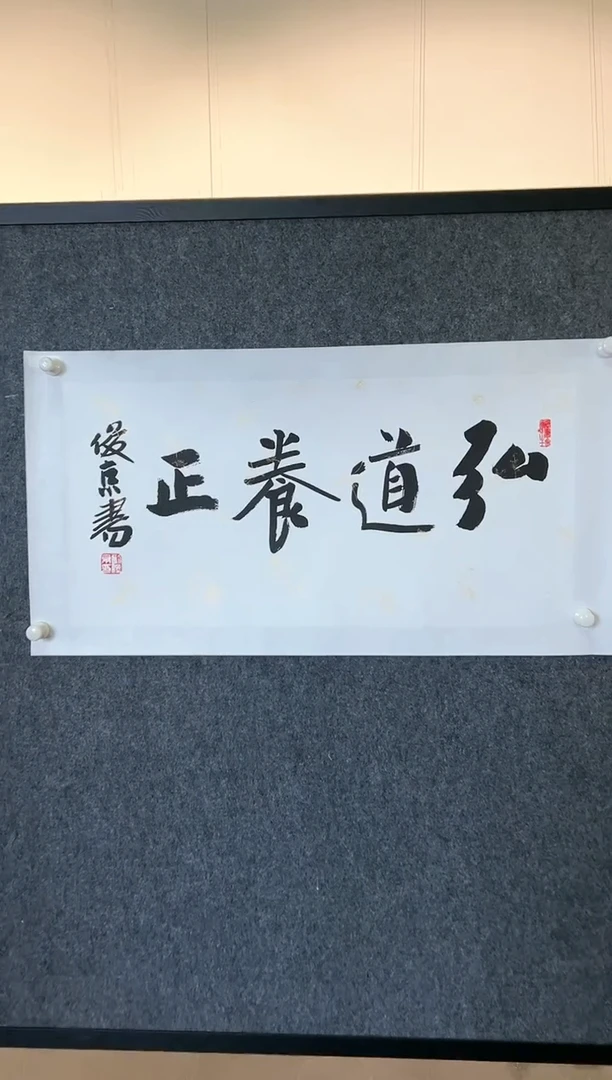 弘道養正
俊京書